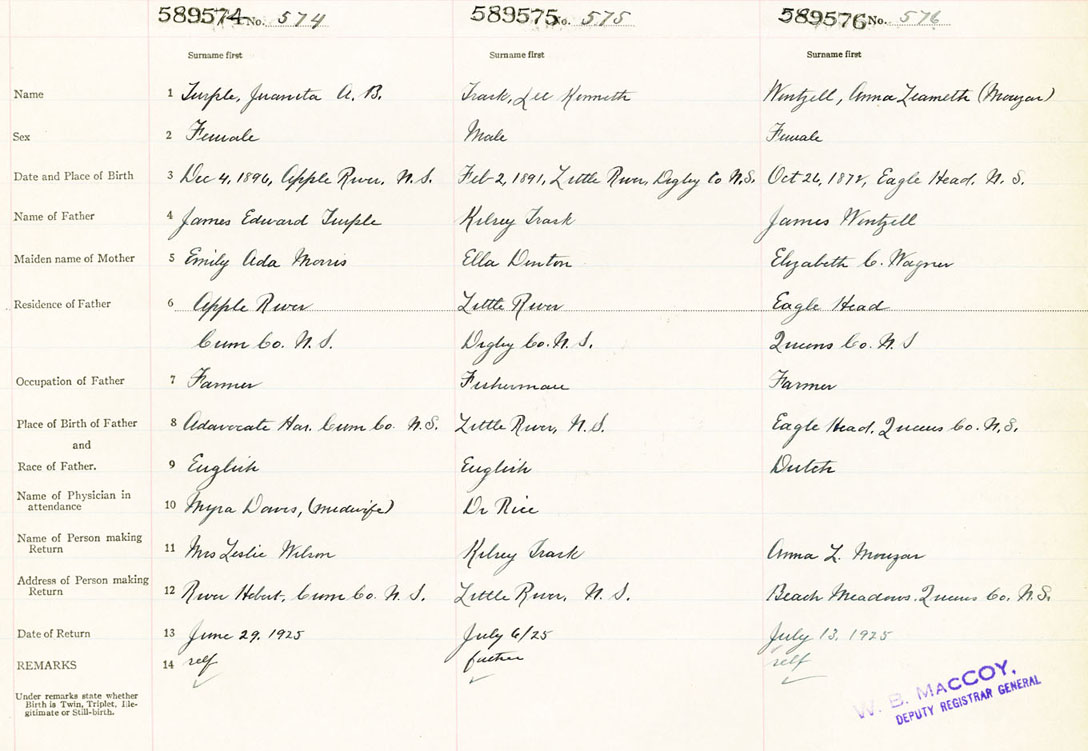 589574 No. 574 589575 No. 575 589576 No. 576
Surname first Surname first Surname first
Name 1 Turple, Juanita A. B. Trask, Lee Kenneth Wentzell, Anna (Mouzar)
Sex 2 Female Male Female
Date and Place of Birth 3 Dec 4, 1896, Apple River, N.S. Feb 2, 1891, Little River, Digby Co N.S. Oct 26, Eagle Head, N. S.
Name of Father 4 James Edward Turple Trask James Wentzell
Maiden name of Mother 5 Emily Ada Morris Ella Denton Elizabeth C. Wagner
Residence of Father 6 Apple River Little River Eagle Head
Cum Co. N. S. Digby Co. N. S. Queens Co. N. S
Occupation of Father 7 Farmer Fisherman Farmer
Place of Birth of Father 8 Adavocate Har. Cum Co. N.S. Little River, N. S. Eagle Head, Queens Co. N.S.
and
Race of Father. 9 English English Dutch
Name of Physician in
attendance 10 Myra Davis, (midwife) Dr Rice
Name of Person making
Return 11 Mrs Leslie Wilson Trask Anna L. Mouzar
Address of Person making
Return 12 River Hebert, Cum Co. N. S. Little River, N. S. Beach Meadows, Queens Co. N.S.
Date of Return 13 June 29, 1925 July 6/25 July 13, 1925
REMARKS 14 self father self
Under remarks state whether
Birth is Twin, Triplet, Ille-
gitimate or Still-birth.
W. B. MACCOY,
DEPUTY REGISTRAR GENERAL